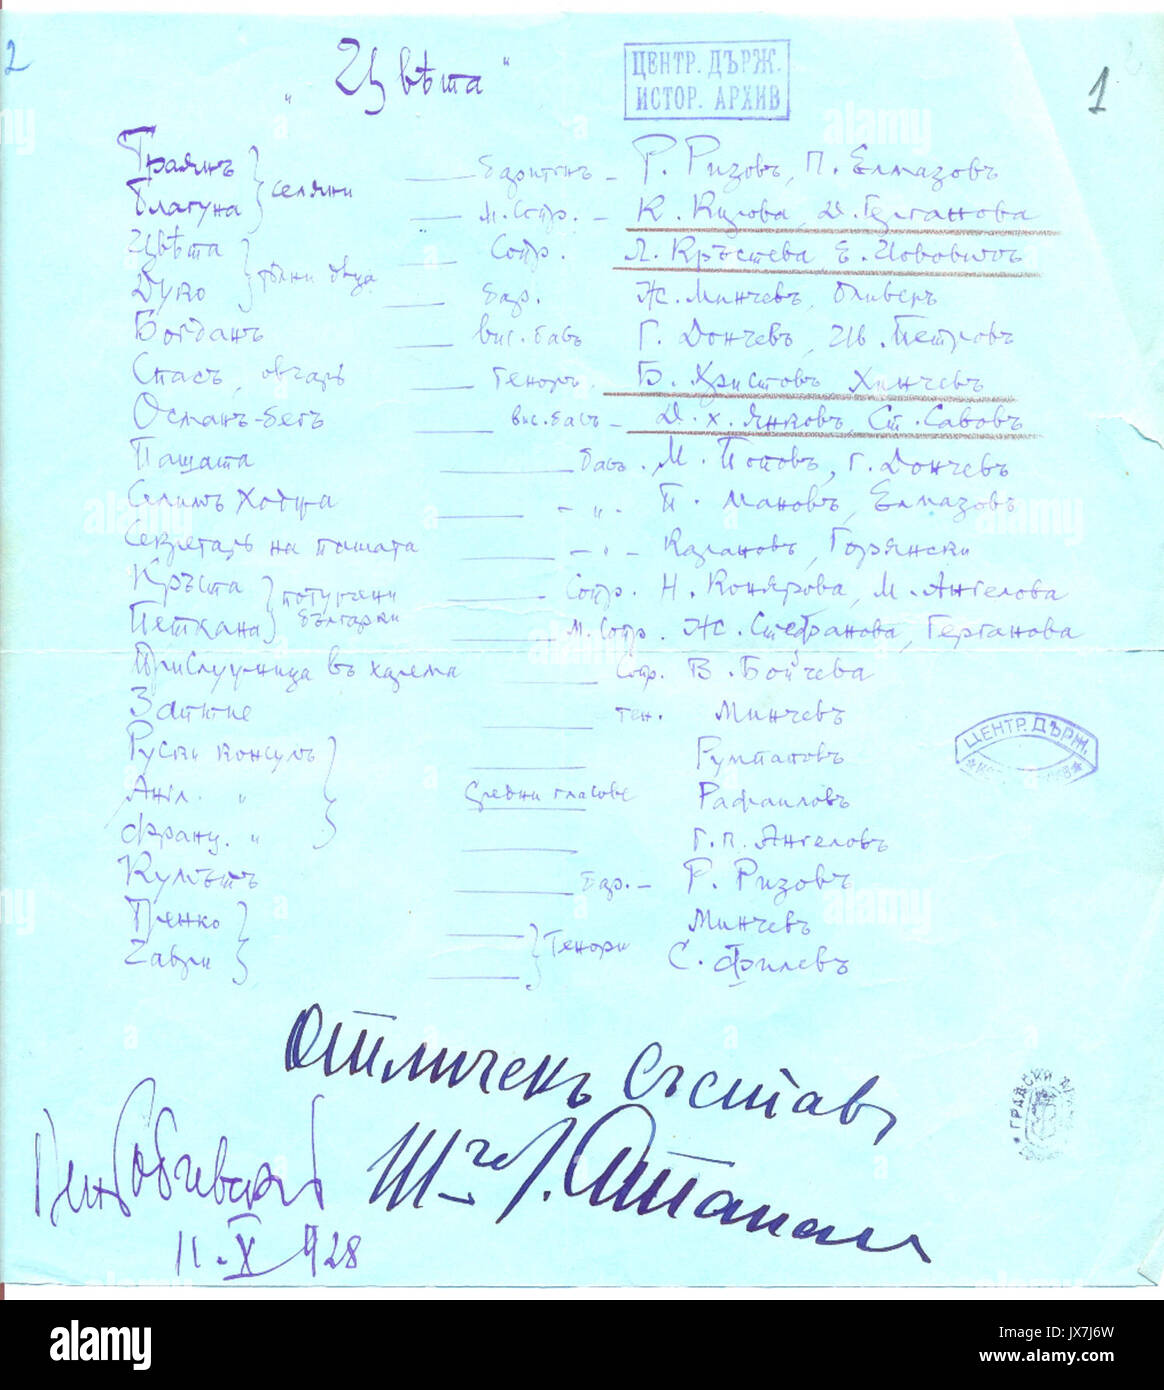 2
„Цвѣта"
ЦЕНТР. ДЪРЖ.
ИСТОР. АРХИВ
1
Траянъ } селяни — баритонъ – Р. Ризовъ, П. Елмазовъ
Благуна — м. сопр. – К. Кирова, Д. Герганова
Цвѣта } тѣхни дѣца — Сопр. Л. Кръстева Е. Йововичъ
Дуко — бар. Ж. Минчевъ,
Богданъ — вис. басъ Г. Дончевъ, Цв. Петровъ
Спасъ, овчарь — теноръ. Б. Христовъ Хинчевъ
Османъ-бегъ — вис. басъ – Д. Х. Янковъ, Ст. Савовъ
Пашата — басъ. М. Поповъ, Г. Дончевъ
Селимъ Ходжа — – „ - П. Мановъ, Елмазовъ
Секретарь на пашата — – „ – Казановъ, Горянски
Кръста } потурчени българки — Сопр. Н. Конярова, М. Ангелова
Петкана — М. Сопр. Ж. Стефанова, Герганова
Прислужница въ харема — Сопр. В. Бойчева
Заптие — тен. Минчевъ
Руски консулъ } — Румпановъ
Англ. „ средни гласове Рафаиловъ
Франц. „ — Г. п. Ангеловъ
Кулмътъ — бар. – Р. Ризовъ
Пенко } — } Тенори Минчевъ
— С. Филевъ
ЦЕНТР. ДЪРЖ.
Отличенъ съставъ
11.X 928
ГРАДСКИ
alamy
Image ID: JX7J6W
www.alamy.com